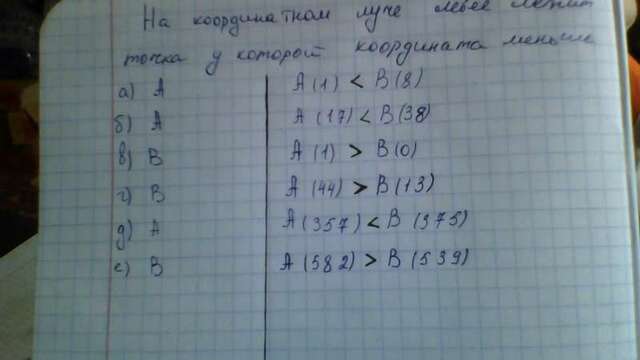 На координатном луче левее лежит
точка у которой координата меньше
а) А A(1) < B(8)
б) А A(17) < B(38)
в) В A(1) > B(0)
г) В A(44) > B(13)
д) А A(357) < B(375)
е) В A(582) > B(539)